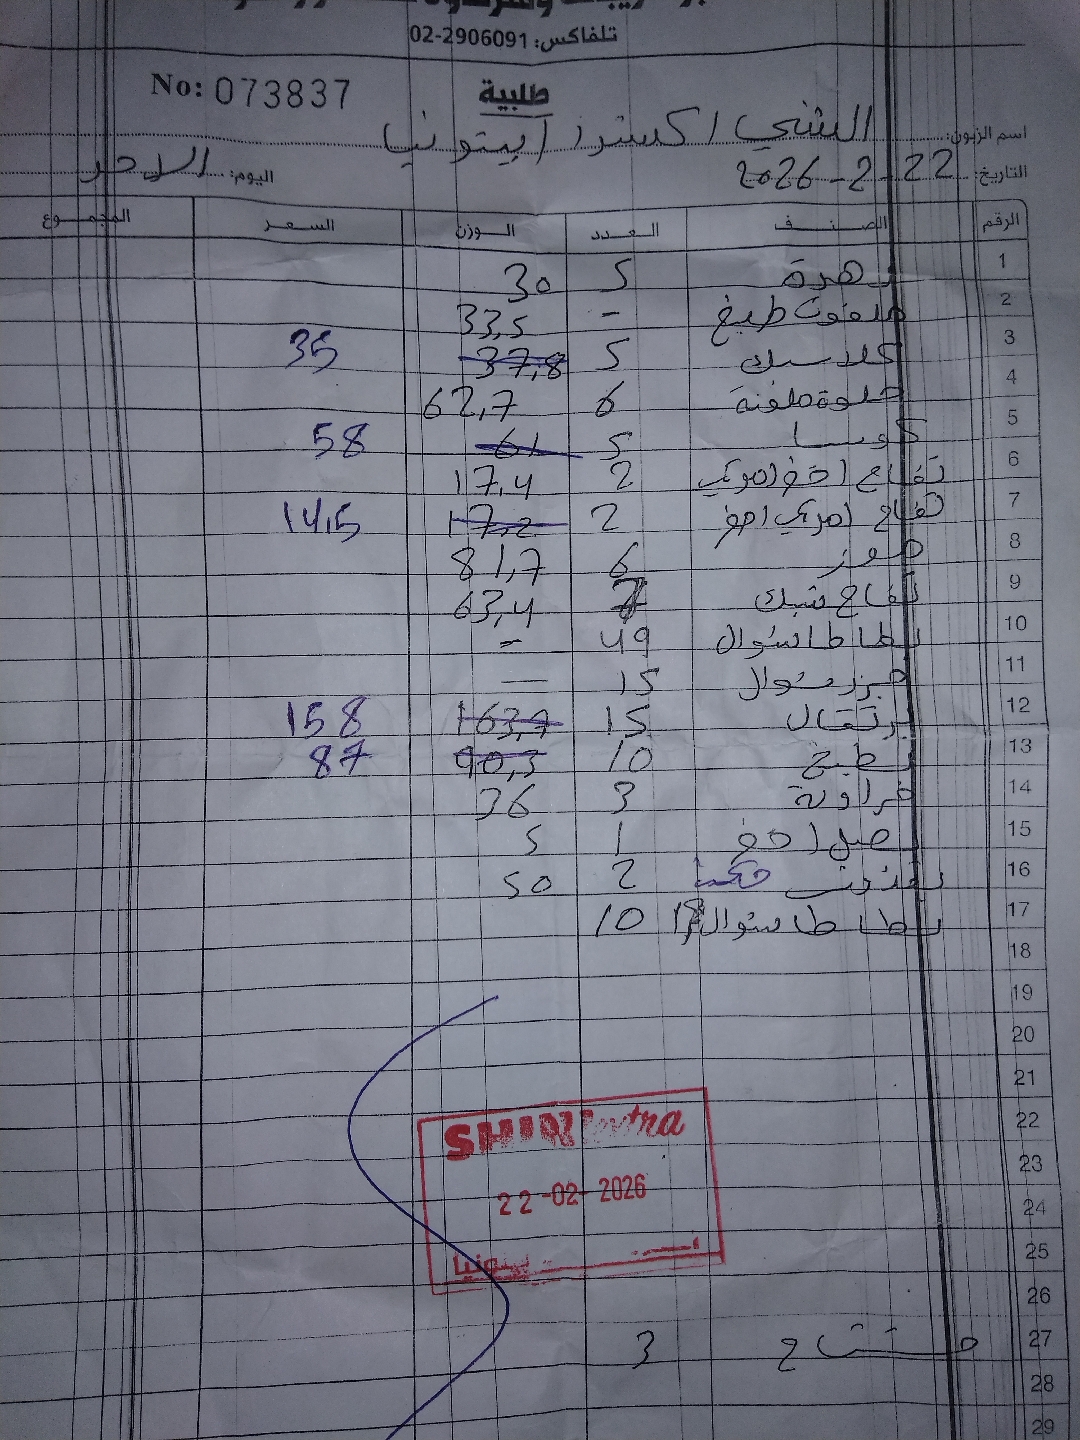 تلفاكس: 02-2906091
No: 073837
طلبية
اسم الزبون: الشني اكسترا بيتونيا
التاريخ: 22-2-2026 اليوم: الاحد
الرقم الصنف العدد الوزن السعر المجموع
1 زهرة 5 30
2 ملفوف طبيخ - 33,5
3 كلاسيك 5 37,8 35
4 حلوة ملونة 6 62,7
5 كوسا 5 61 58
6 تفاح اخضر امريكي 2 17,4
7 تفاح امريكي احمر 2 17,2 14,5
8 موز 6 81,7
9 تفاح شبك 7 63,4
10 بطاطا شوال 49 -
11 جزر شوال 15 —
12 برتقال 15 163,7 158
13 بطيخ 10 90,3 87
14 فراولة 3 36
15 بصل اخضر 1 5
16 بقدونس 2 50
17 بطاطا شوال 10
18
19
20
21
22
23
24
25
26
27 مشتاح 3
28
29
SHINI extra
22-02-2026
بيتونيا